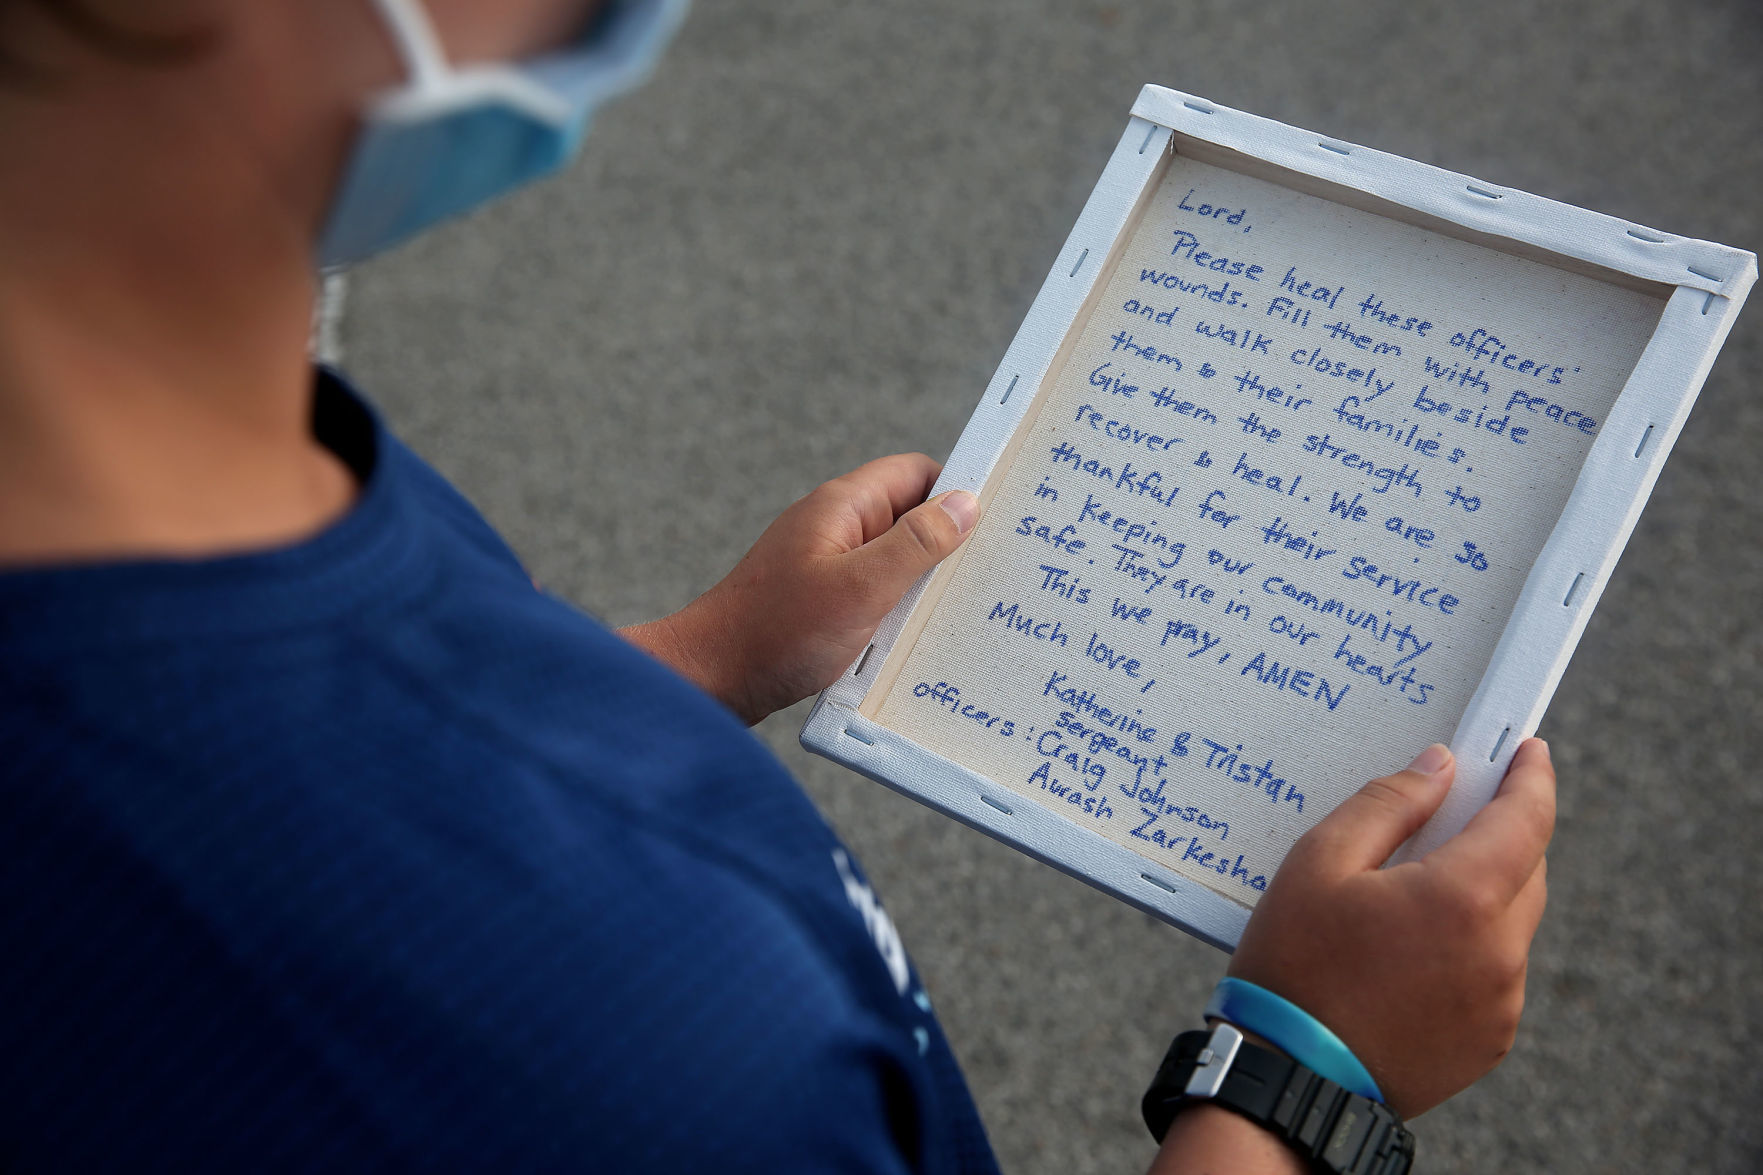 Lord,
Please heal these officers'
wounds. Fill them with peace
and walk closely beside
them & their families.
Give them the strength to
recover & heal. We are so
thankful for their service
in keeping our community
safe. They are in our hearts
This we pray, AMEN
Much love,
Katherine & Tristan
officers: Sergeant
Craig Johnson
Aurash Zarkesha